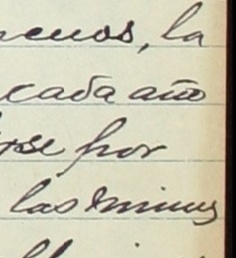 menos, la
cada año
rse por
las minus